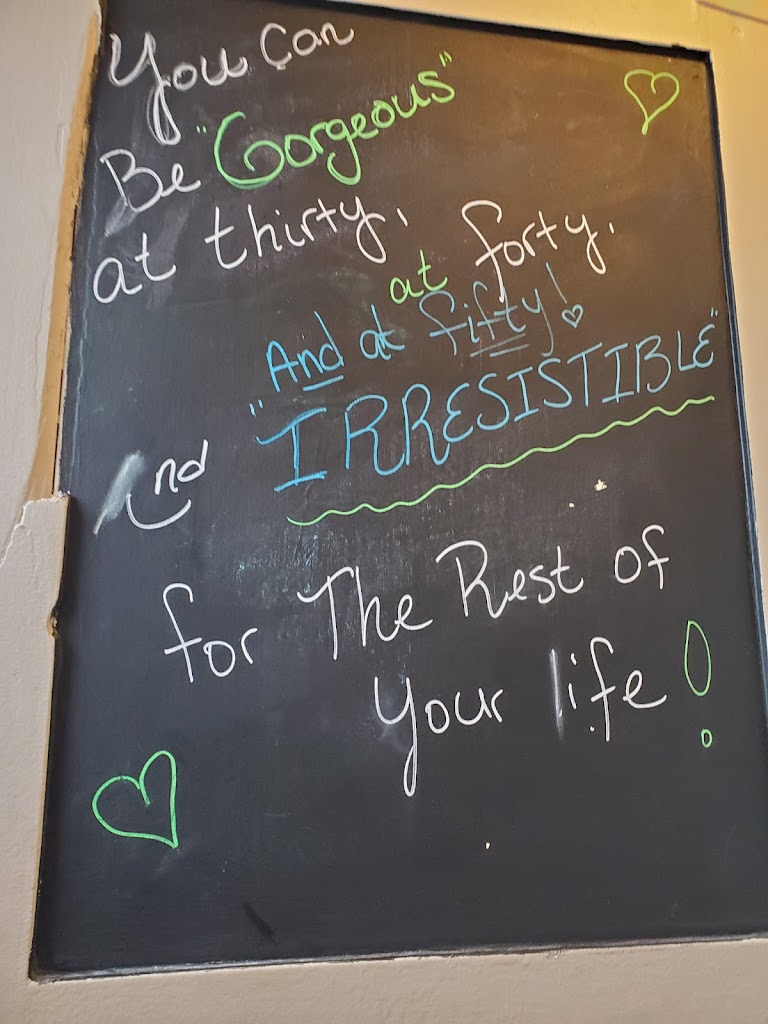 You Can
Be "Gorgeous"
at thirty,
at forty,
And at fifty!
"IRRESISTIBLE"
And
for The Rest of
Your life!